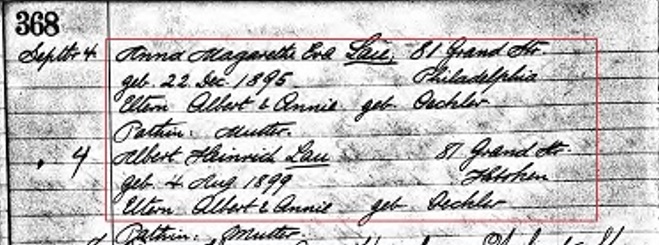 368
Septbr 4. Anna Magarethe Eva Lau, 81 Grand Str.
geb. 22. Dec. 1895 Philadelphia
Eltern Albert & Annie geb. Oechler
Pathin: Mutter.
" 4 Albert Heinrich Lau 81 Grand Str.
geb. 4. Aug. 1899 Hoboken
Eltern Albert & Annie geb. Oechler
Pathin: Mutter.